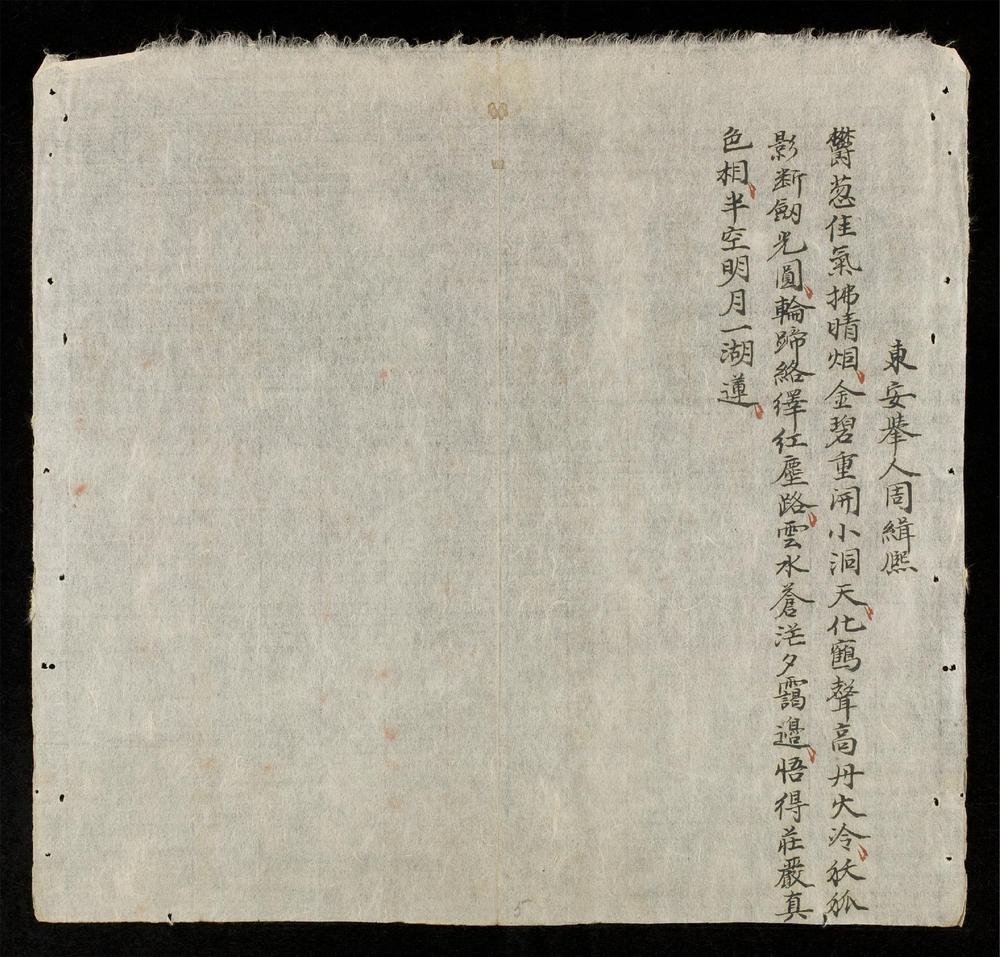 東安舉人周緝熙
欝葱佳氣拂晴烟金碧重開小洞天化鶴聲高丹火冷妖狐
影斷劒光圓輪蹄絡繹紅塵路雲水蒼茫夕靄邊悟得莊嚴真
色相半空明月一湖蓮
5